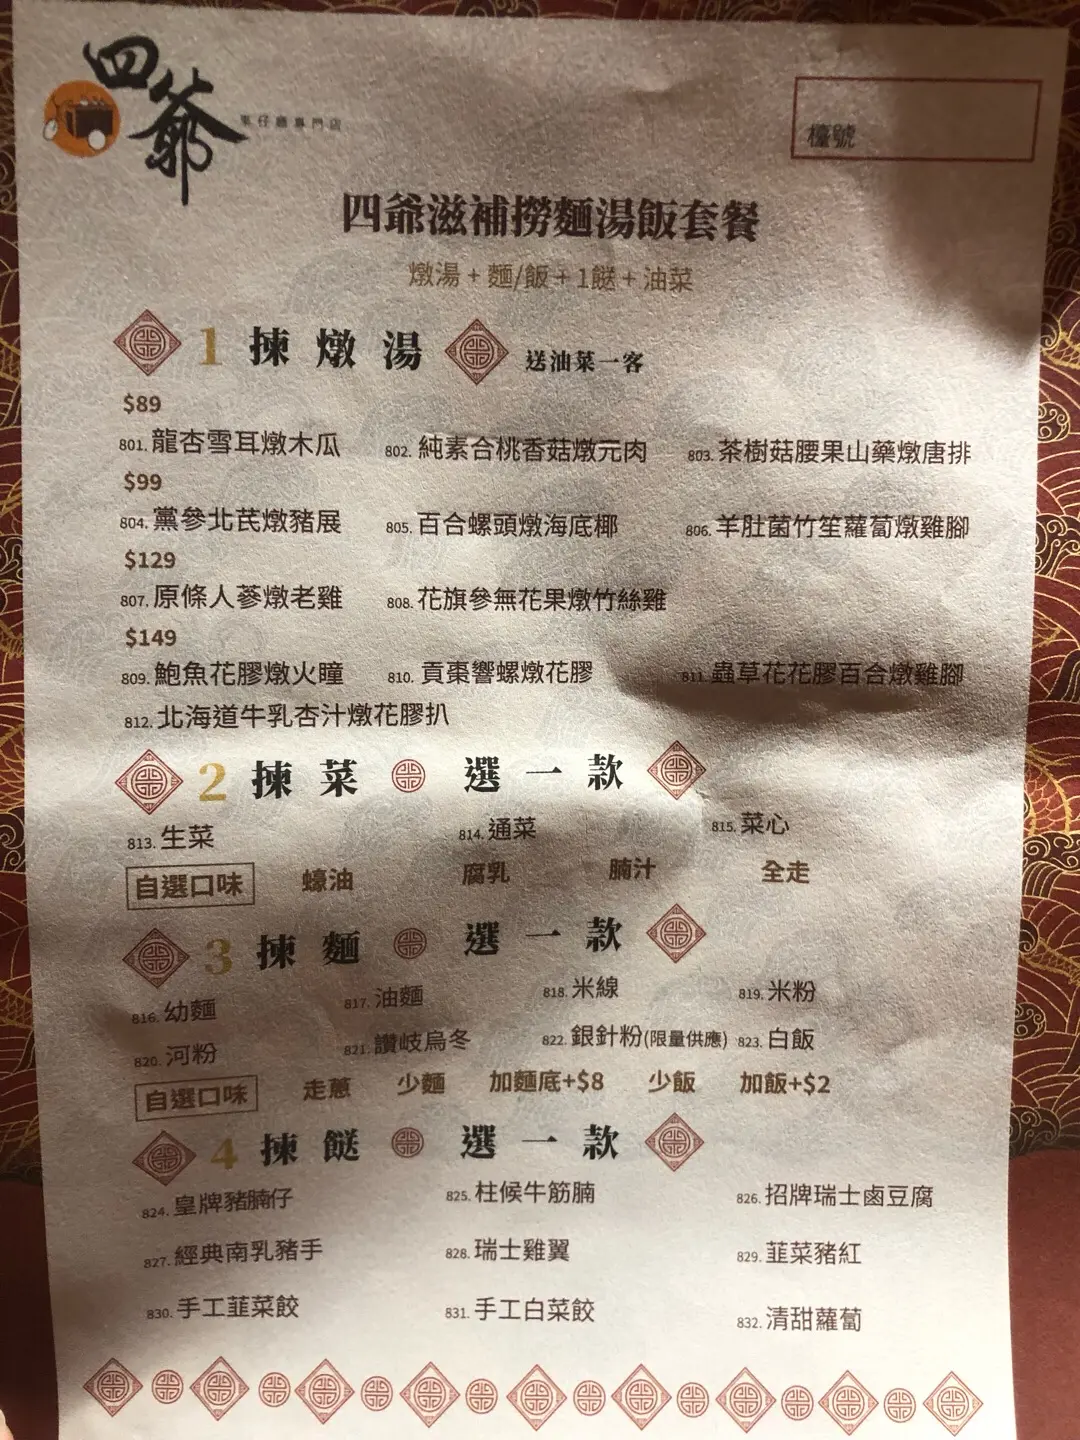 四爺
車仔麵專門店
檯號
四爺滋補撈麵湯飯套餐
燉湯 + 麵/飯 + 1餸 + 油菜
1 揀燉湯 送油菜一客
$89
801. 龍杏雪耳燉木瓜 802. 純素合桃香菇燉元肉 803. 茶樹菇腰果山藥燉唐排
$99
804. 黨參北芪燉豬展 805. 百合螺頭燉海底椰 806. 羊肚菌竹笙蘿蔔燉雞腳
$129
807. 原條人蔘燉老雞 808. 花旗參無花果燉竹絲雞
$149
809. 鮑魚花膠燉火瞳 810. 貢棗響螺燉花膠 811. 蟲草花花膠百合燉雞腳
812. 北海道牛乳杏汁燉花膠扒
2 揀菜 選一款
813. 生菜 814. 通菜 815. 菜心
自選口味 蠔油 腐乳 腩汁 全走
3 揀麵 選一款
816. 幼麵 817. 油麵 818. 米線 819. 米粉
820. 河粉 821. 讚岐烏冬 822. 銀針粉(限量供應) 823. 白飯
自選口味 走蔥 少麵 加麵底+$8 少飯 加飯+$2
4 揀餸 選一款
824. 皇牌豬腩仔 825. 柱候牛筋腩 826. 招牌瑞士鹵豆腐
827. 經典南乳豬手 828. 瑞士雞翼 829. 韮菜豬紅
830. 手工韮菜餃 831. 手工白菜餃 832. 清甜蘿蔔